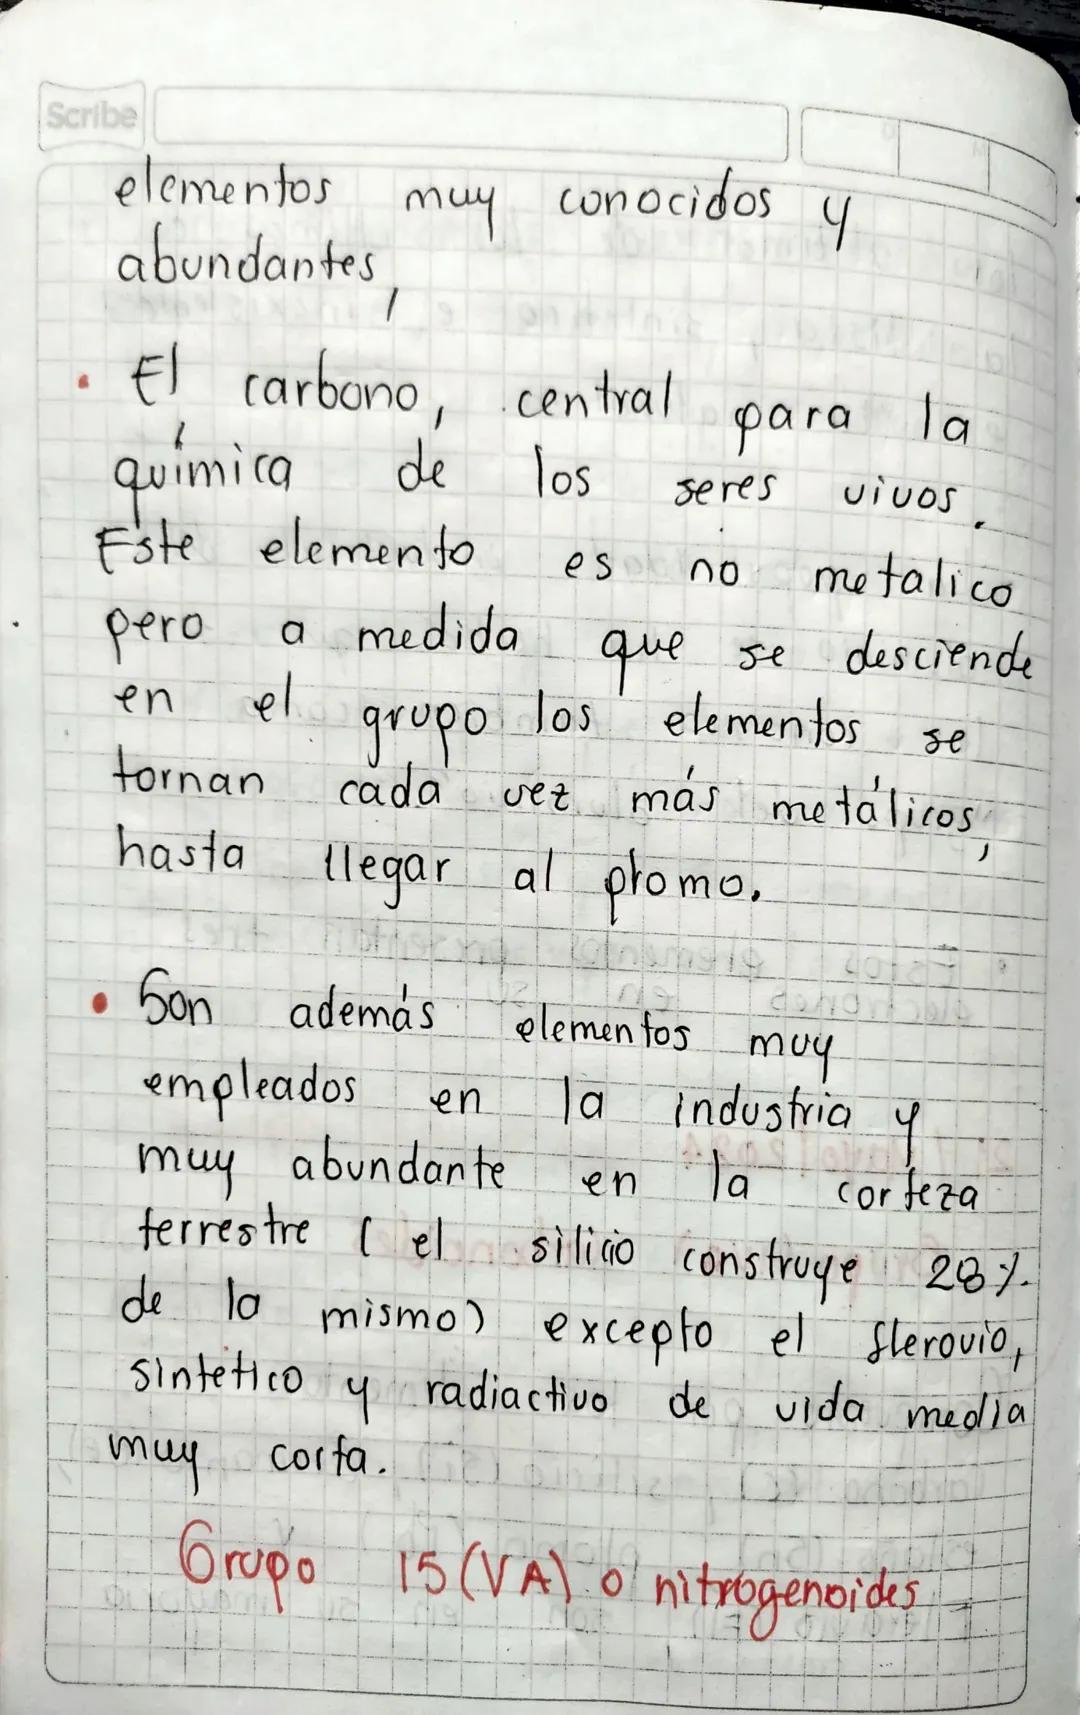 Scribe
elementos muy conocidos y
abundantes,
• El carbono, central para la
química de los seres vivos.
Este elemento es no metalico
pero a medida que se desciende
en el grupo los elementos se
tornan cada vez más metálicos,
hasta llegar al plomo.
• Son además elementos muy
empleados en la industria y
muy abundante en la corteza
terrestre (el silicio construye 28%
de la mismo) excepto el flerovio,
sintético y radiactivo de vida media
muy corta.
Grupo 15 (VA) o nitrogenoides